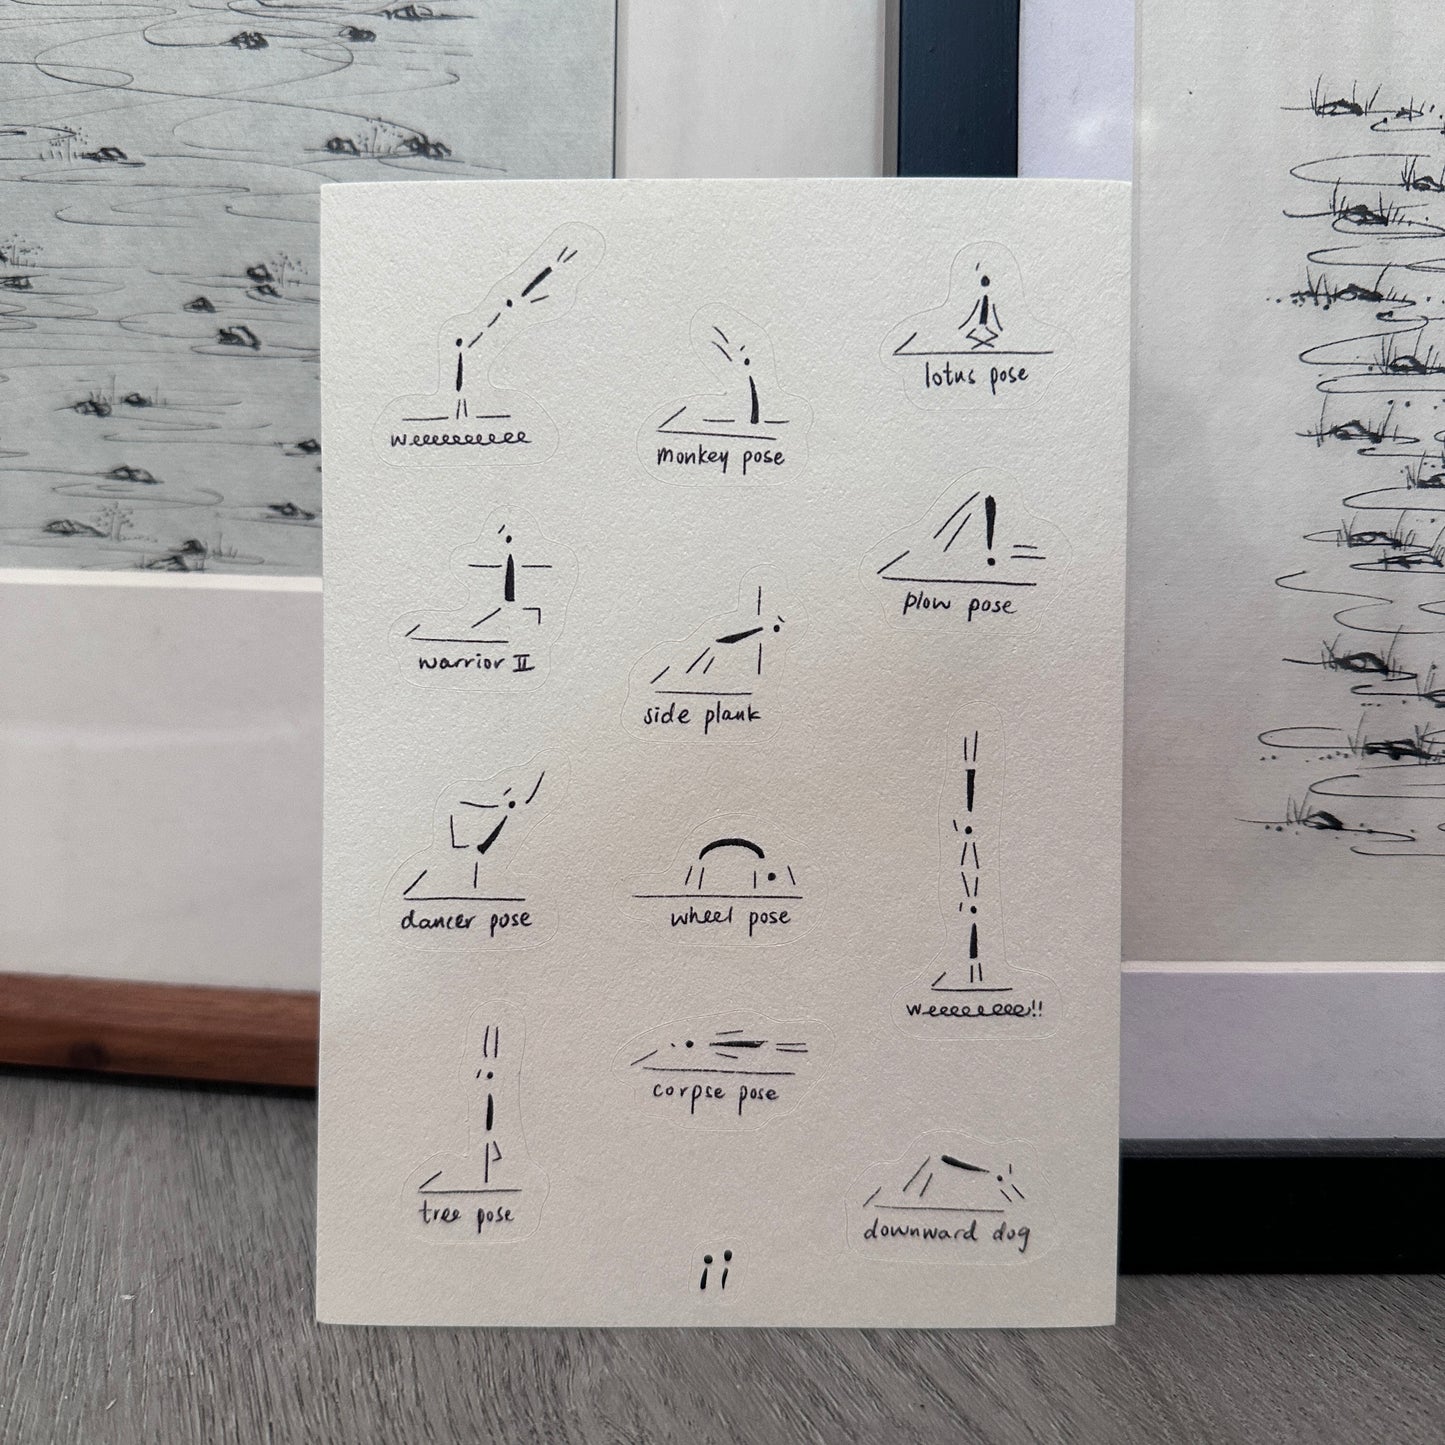 weeeeeeeeee
monkey pose
lotus pose
warrior II
side plank
plow pose
dancer pose
wheel pose
weeeeeeee!!
tree pose
corpse pose
downward dog
ii